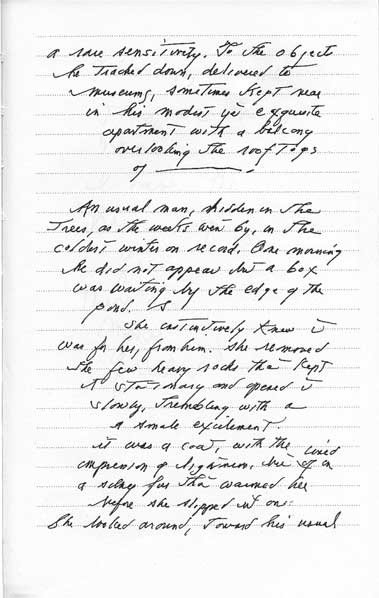 a rare sensitivity. To the objects
he tracked down, delivered to
museums, sometimes kept near
in his modest yet exquisite
apartment with a balcony
overlooking the rooftops
of ________.
As usual man, hidden in the
trees, as the weeks went by, in the
coldest winter on record. One morning
he did not appear but a box
was waiting by the edge of the
pond. S
She instinctively knew it
was for her, from him. She removed
the few heavy rocks that kept
it stationary and opened it
slowly, trembling with a
small excitement.
it was a coat, with the lined
compression of
a fur that warmed her
before she slipped it on.
She looked around, toward his usual